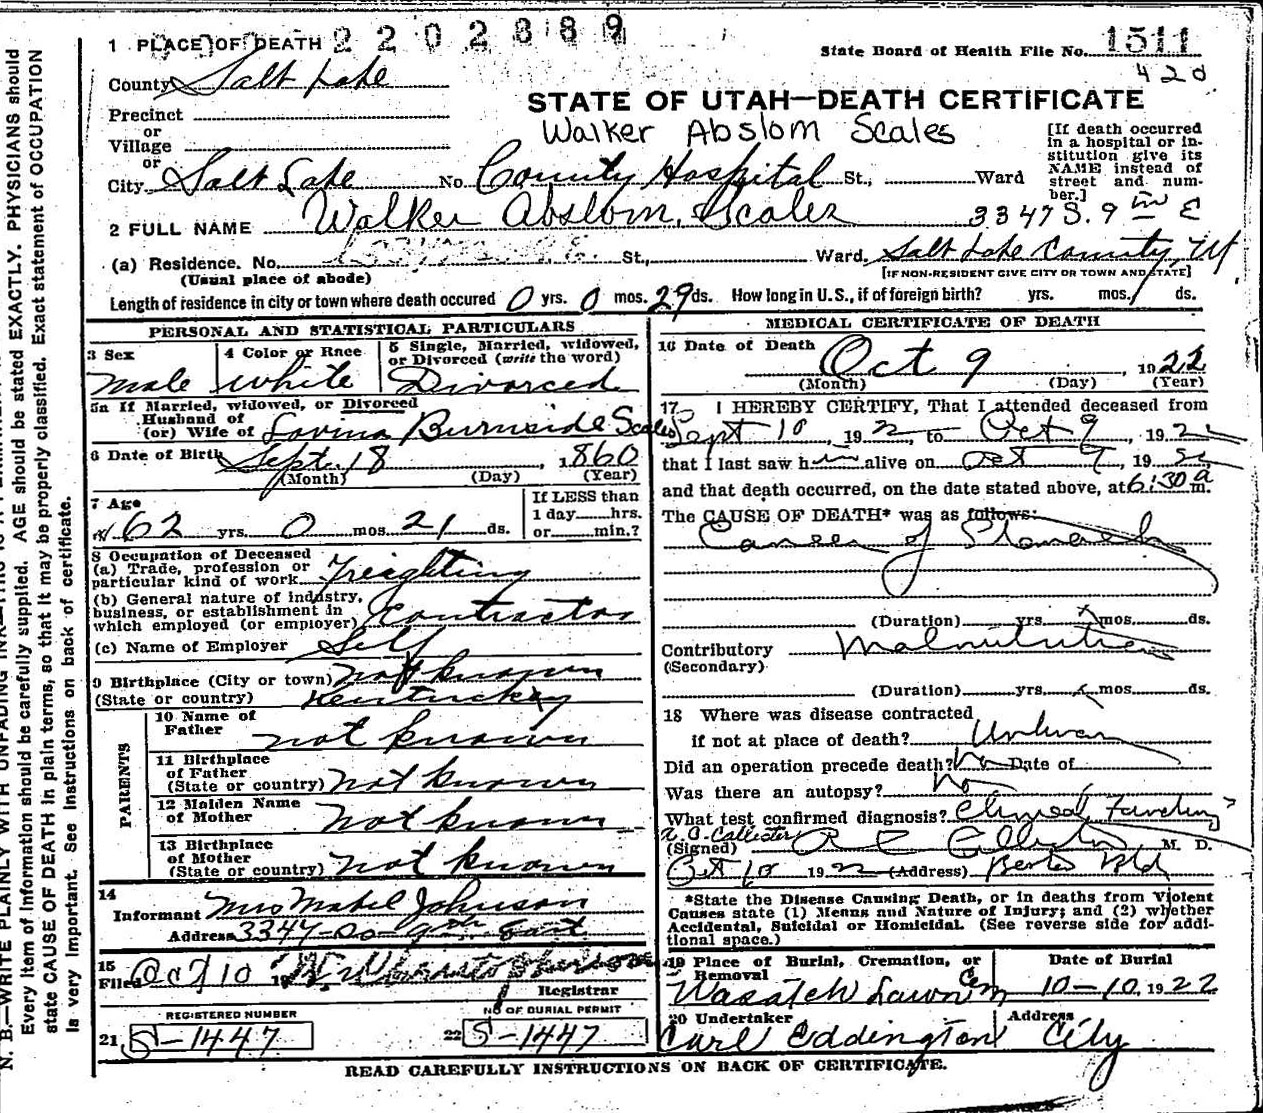 2202889
1 PLACE OF DEATH
State Board of Health File No. 1511
420
County Salt Lake
STATE OF UTAH—DEATH CERTIFICATE
Precinct
or
Village
or
Walker Abslom Scales
[If death occurred in a hospital or institution give its NAME instead of street and number.]
City Salt Lake No. County Hospital St., Ward
2 FULL NAME Walker Abslom Scales
3347 S. 9th E
(a) Residence. No. St., Ward. Salt Lake County, Ut
(Usual place of abode) [IF NON-RESIDENT GIVE CITY OR TOWN AND STATE]
Length of residence in city or town where death occured 0 yrs. 0 mos. 29 ds. How long in U.S., if of foreign birth? yrs. mos. ds.
PERSONAL AND STATISTICAL PARTICULARS
3 Sex male
4 Color or Race white
5 Single, Married, widowed, or Divorced (write the word) Divorced
5a If Married, widowed, or Divorced
Husband of
(or) Wife of Lovina Burnside Scales
6 Date of Birth Sept. 18, 1860
(Month) (Day) (Year)
7 Age
62 yrs. 0 mos. 21 ds.
If LESS than
1 day hrs.
or min.?
8 Occupation of Deceased
(a) Trade, profession or
particular kind of work Freighting
(b) General nature of industry,
business, or establishment in
which employed (or employer) Contractor
(c) Name of Employer Self
9 Birthplace (City or town) not known
(State or country) Kentucky
PARENTS
10 Name of
Father not known
11 Birthplace
of Father
(State or country) not known
12 Maiden Name
of Mother not known
13 Birthplace
of Mother
(State or country) not known
14
Informant Mrs Mabel Johnson
Address 3347 So 9th East
15
Filed Oct 10
Registrar
REGISTERED NUMBER
No OF BURIAL PERMIT
21 S-1447
22 S-1447
MEDICAL CERTIFICATE OF DEATH
16 Date of Death
Oct 9, 1922
(Month) (Day) (Year)
17 I HEREBY CERTIFY, That I attended deceased from
Sept 10, 1922 to Oct 9, 1922
that I last saw him alive on Oct 9, 1922
and that death occurred, on the date stated above, at 6:30 a m.
The CAUSE OF DEATH* was as follows:
Cancer of Stomach
(Duration) yrs. x mos. ds.
Contributory Malnutrition
(Secondary)
(Duration) yrs. x mos. ds.
18 Where was disease contracted
if not at place of death? Unknown
Did an operation precede death? No Date of
Was there an autopsy? No
What test confirmed diagnosis? Clinical
(Signed) M. D.
Oct 10 1922 (Address)
*State the Disease Causing Death, or in deaths from Violent
Causes state (1) Means and Nature of Injury; and (2) whether
Accidental, Suicidal or Homicidal. (See reverse side for addi-
tional space.)
19 Place of Burial, Cremation, or
Removal
Wasatch Lawn Cem
Date of Burial
10-10, 1922
20 Undertaker
Carl Eddington
Address
City
READ CAREFULLY INSTRUCTIONS ON BACK OF CERTIFICATE.
Every item of information should be carefully supplied. AGE should be stated EXACTLY. PHYSICIANS should
state CAUSE OF DEATH in plain terms, so that it may be properly classified. Exact statement of OCCUPATION
is very important. See Instructions on back of certificate.